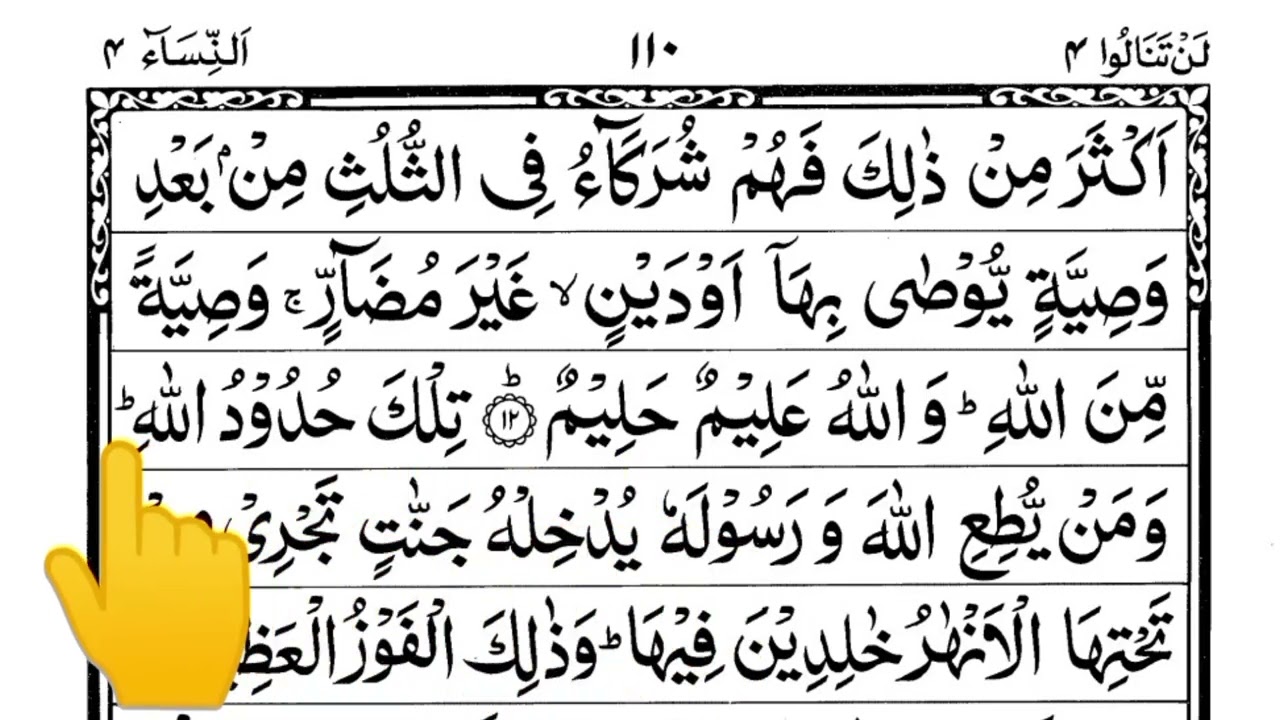 لَنْ تَنَالُوا ۴ ۱۱۰ اَلنِّسَآء ۴
اَكْثَرَ مِنْ ذٰلِكَ فَهُمْ شُرَكَآءُ فِی الثُّلُثِ مِنْۢ بَعْدِ
وَصِیَّةٍ یُّوْصٰی بِهَاۤ اَوْ دَیْنٍ ۙ غَیْرَ مُضَآرٍّ ۚ وَصِیَّةً
مِّنَ اللّٰهِ ؕ وَ اللّٰهُ عَلِیْمٌ حَلِیْمٌ ؕ ۱۲ تِلْكَ حُدُوْدُ اللّٰهِ ؕ
وَ مَنْ یُّطِعِ اللّٰهَ وَ رَسُوْلَهٗ یُدْخِلْهُ جَنّٰتٍ تَجْرِیْ
تَحْتِهَا الْاَنْهٰرُ خٰلِدِیْنَ فِیْهَا ؕ وَ ذٰلِكَ الْفَوْزُ